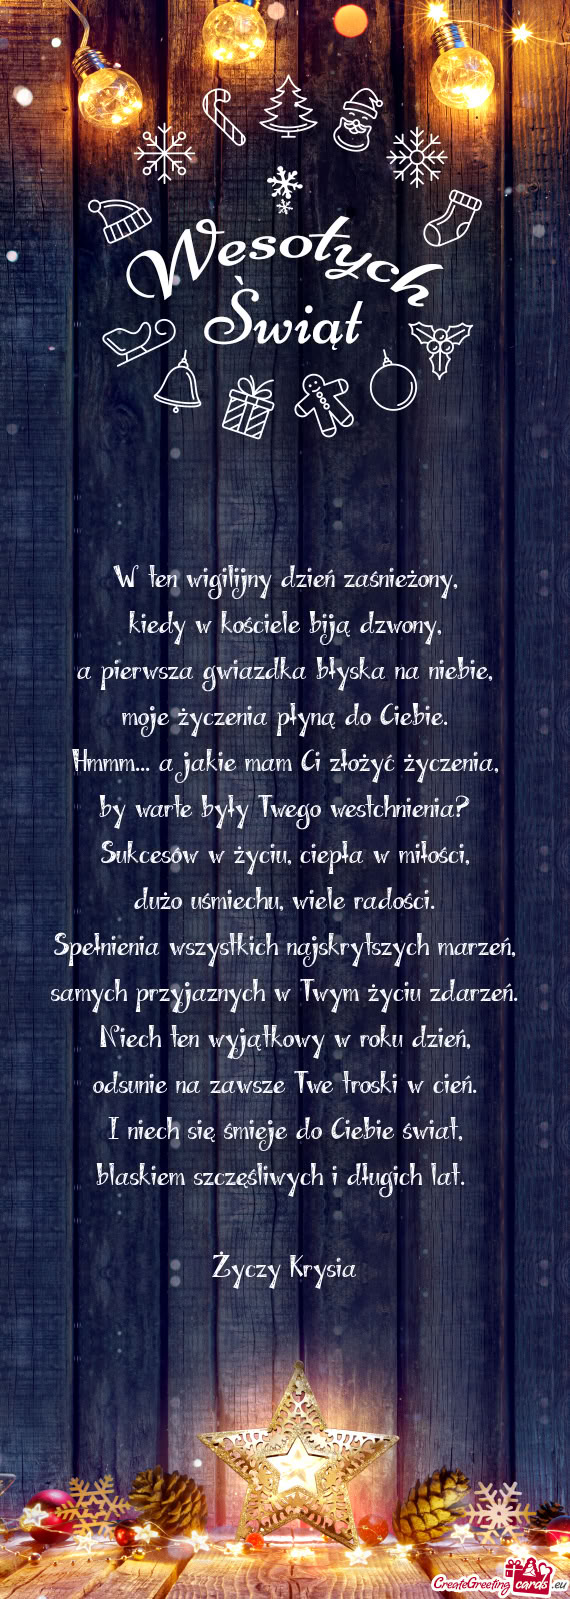 Wesołych
Świąt
W ten wigilijny dzień zaśnieżony,
kiedy w kościele biją dzwony,
a pierwsza gwiazdka błyska na niebie,
moje życzenia płyną do Ciebie.
Hmmm... a jakie mam Ci złożyć życzenia,
by warte były Twego westchnienia?
Sukcesów w życiu, ciepła w miłości,
dużo uśmiechu, wiele radości.
Spełnienia wszystkich najskrytszych marzeń,
samych przyjaznych w Twym życiu zdarzeń.
Niech ten wyjątkowy w roku dzień,
odsunie na zawsze Twe troski w cień.
I niech się śmieje do Ciebie świat,
blaskiem szczęśliwych i długich lat.
Życzy Krysia
CreateGreetingcards.eu